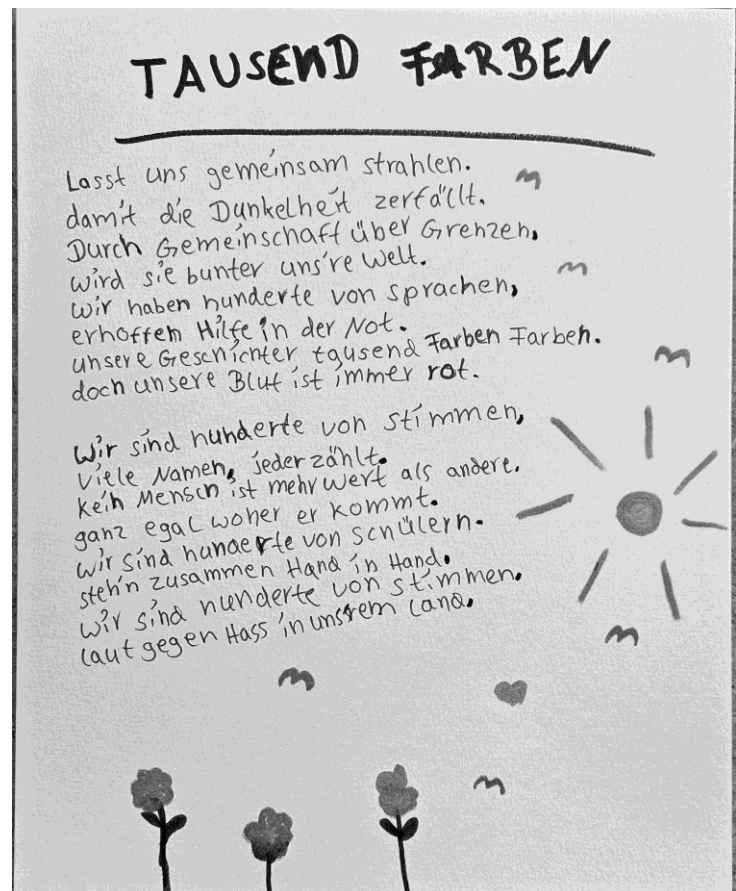 TAUSEND FARBEN
Lasst uns gemeinsam strahlen.
damit die Dunkelheit zerfällt.
Durch Gemeinschaft über Grenzen,
wird sie bunter uns're Welt.
wir haben hunderte von sprachen,
erhoffen Hilfe in der Not.
unsere Geschichter tausend Farben Farben.
doch unsere Blut ist immer rot.
Wir sind hunderte von stimmen,
viele Namen, jeder zählt.
kein Mensch ist mehr wert als andere.
ganz egal woher er kommt.
wir sind hunderte von schülern.
steh'n zusammen Hand in Hand.
wir sind hunderte von stimmen.
laut gegen Hass in unsrem Land.